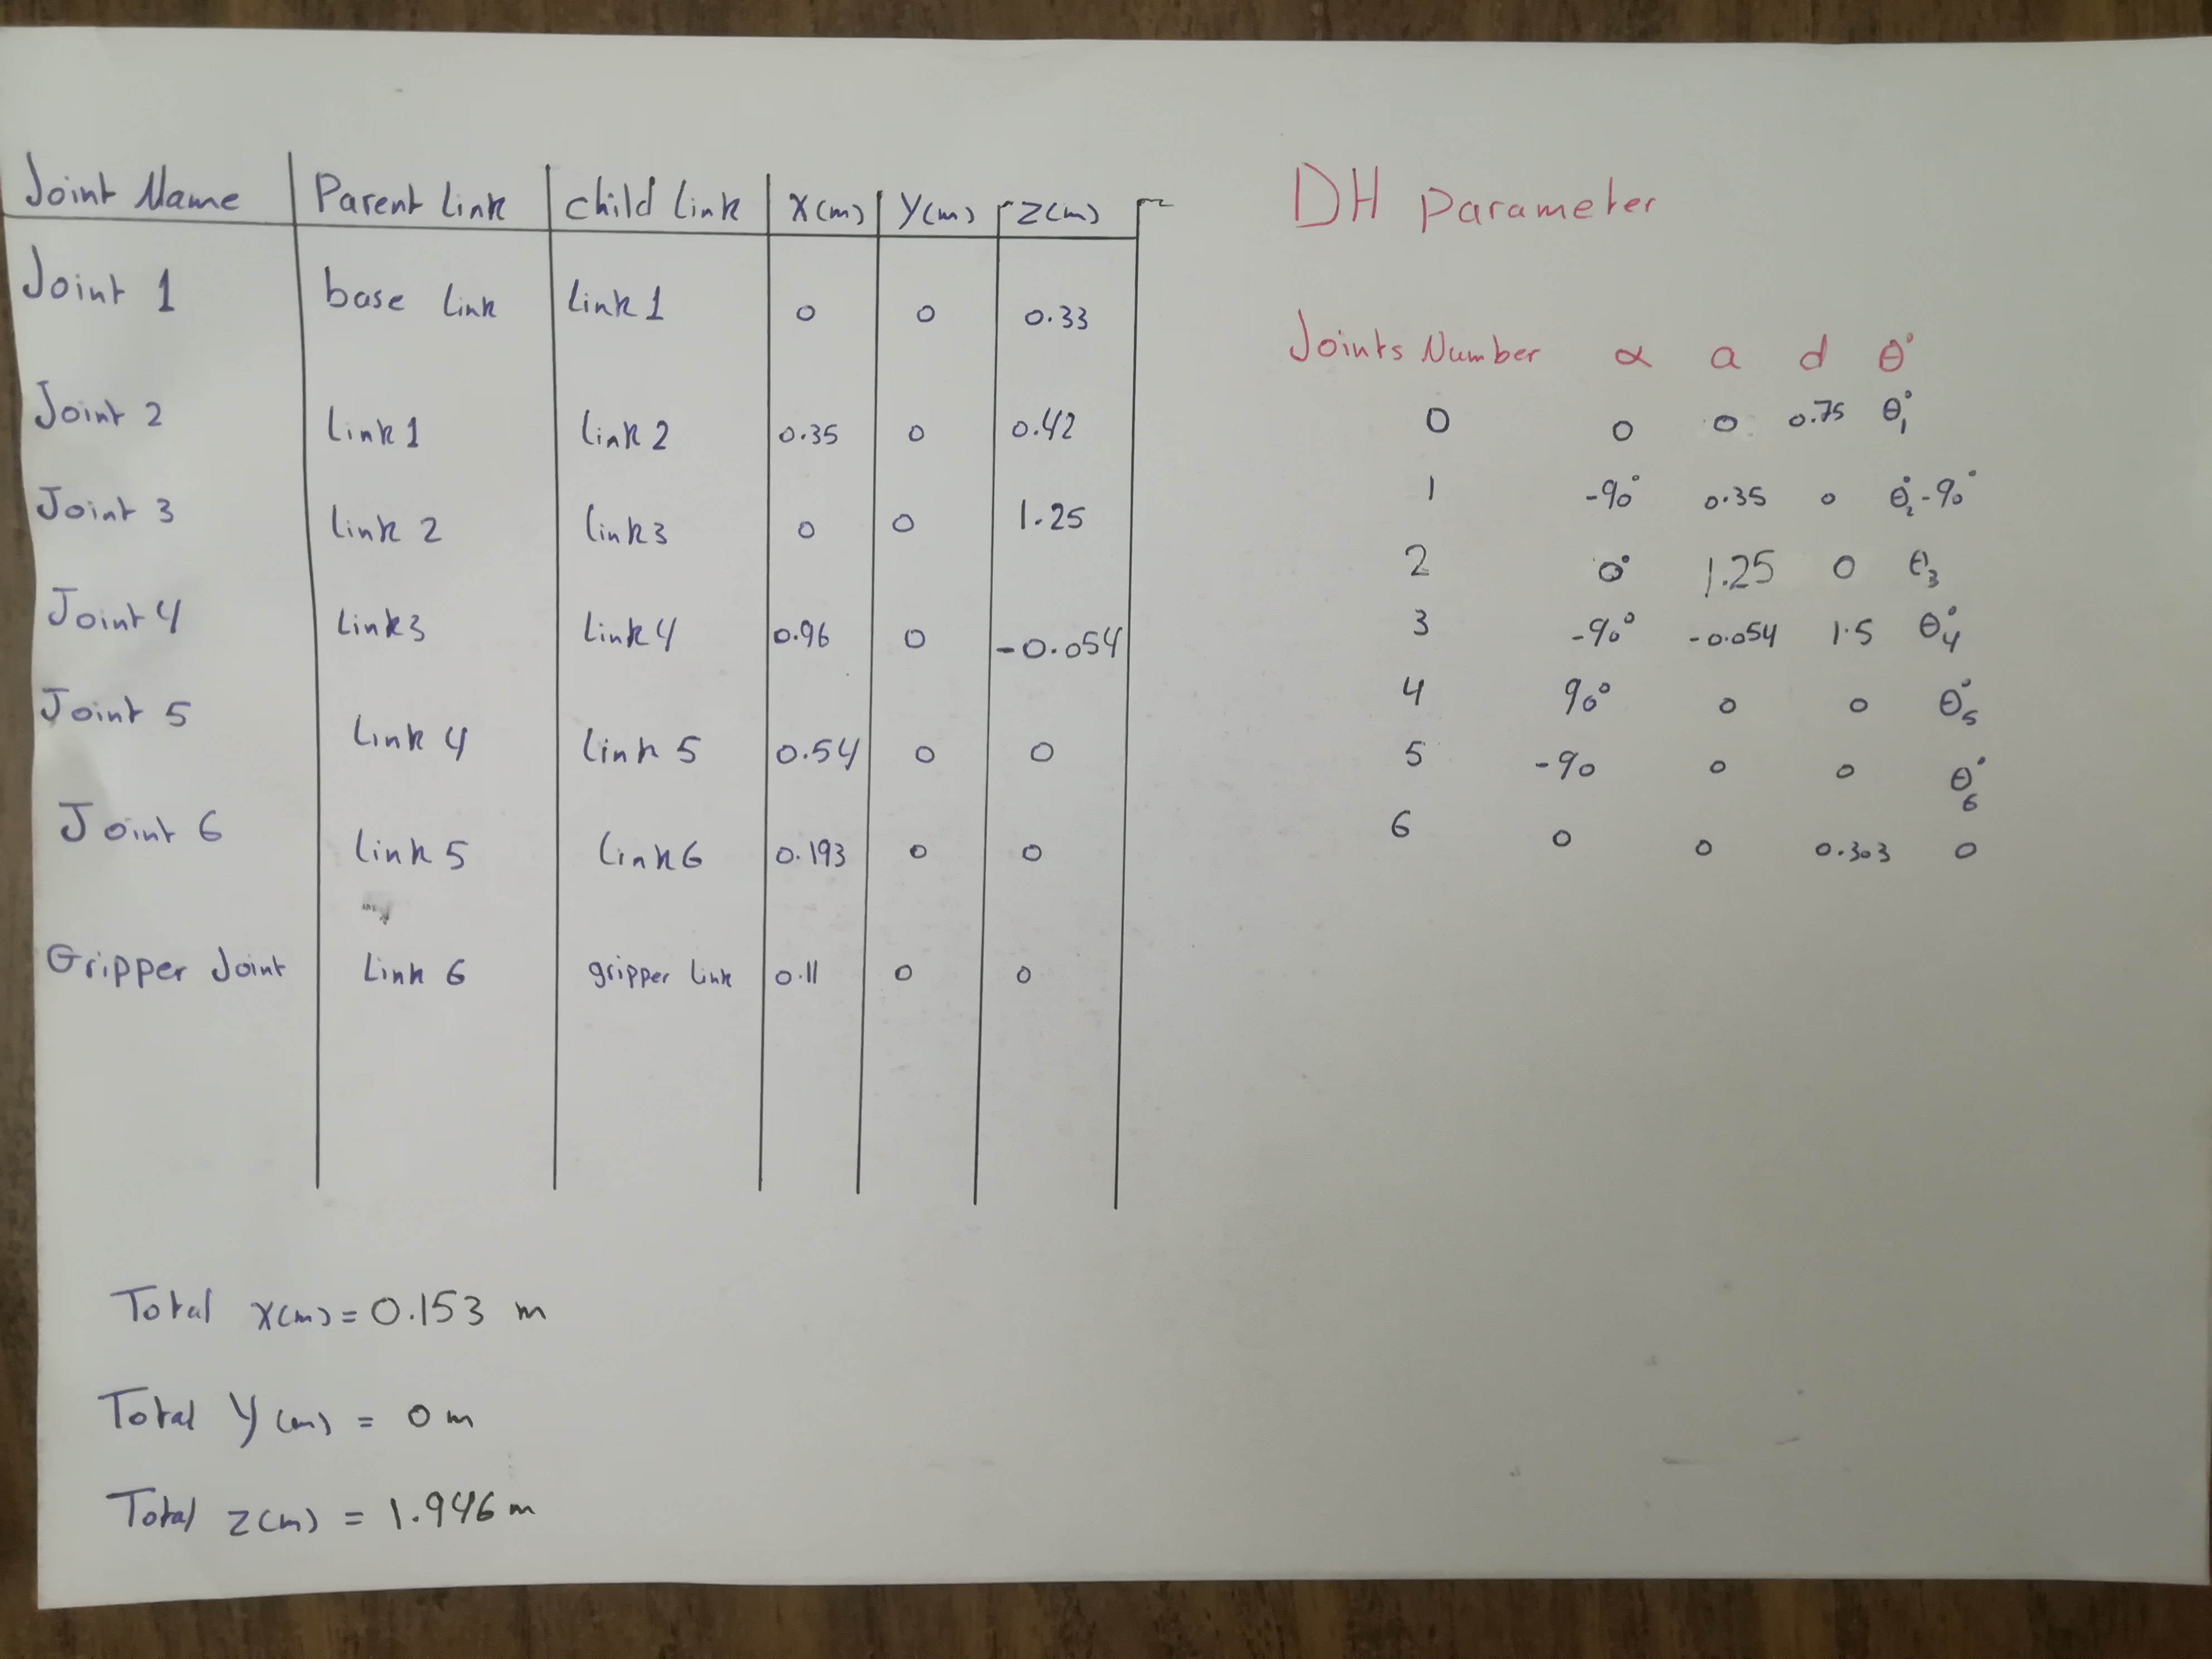 Joint Name Parent Link child link X(m) Y(m) Z(m)
Joint 1 base link link 1 0 0 0.33
Joint 2 Link 1 link 2 0.35 0 0.42
Joint 3 link 2 link 3 0 0 1.25
Joint 4 Link 3 link 4 0.96 0 -0.054
Joint 5 Link 4 link 5 0.54 0 0
Joint 6 link 5 link 6 0.193 0 0
Gripper Joint Link 6 gripper link 0.11 0 0
Total X(m) = 0.153 m
Total Y(m) = 0 m
Total Z(m) = 1.946 m
DH Parameter
Joints Number α a d θ°
0 0 0 0.75 θ°₁
1 -90° 0.35 0 θ°₂-90°
2 0° 1.25 0 θ₃
3 -90° -0.054 1.5 θ°₄
4 90° 0 0 θ°₅
5 -90 0 0 θ°₆
6 0 0 0.303 0